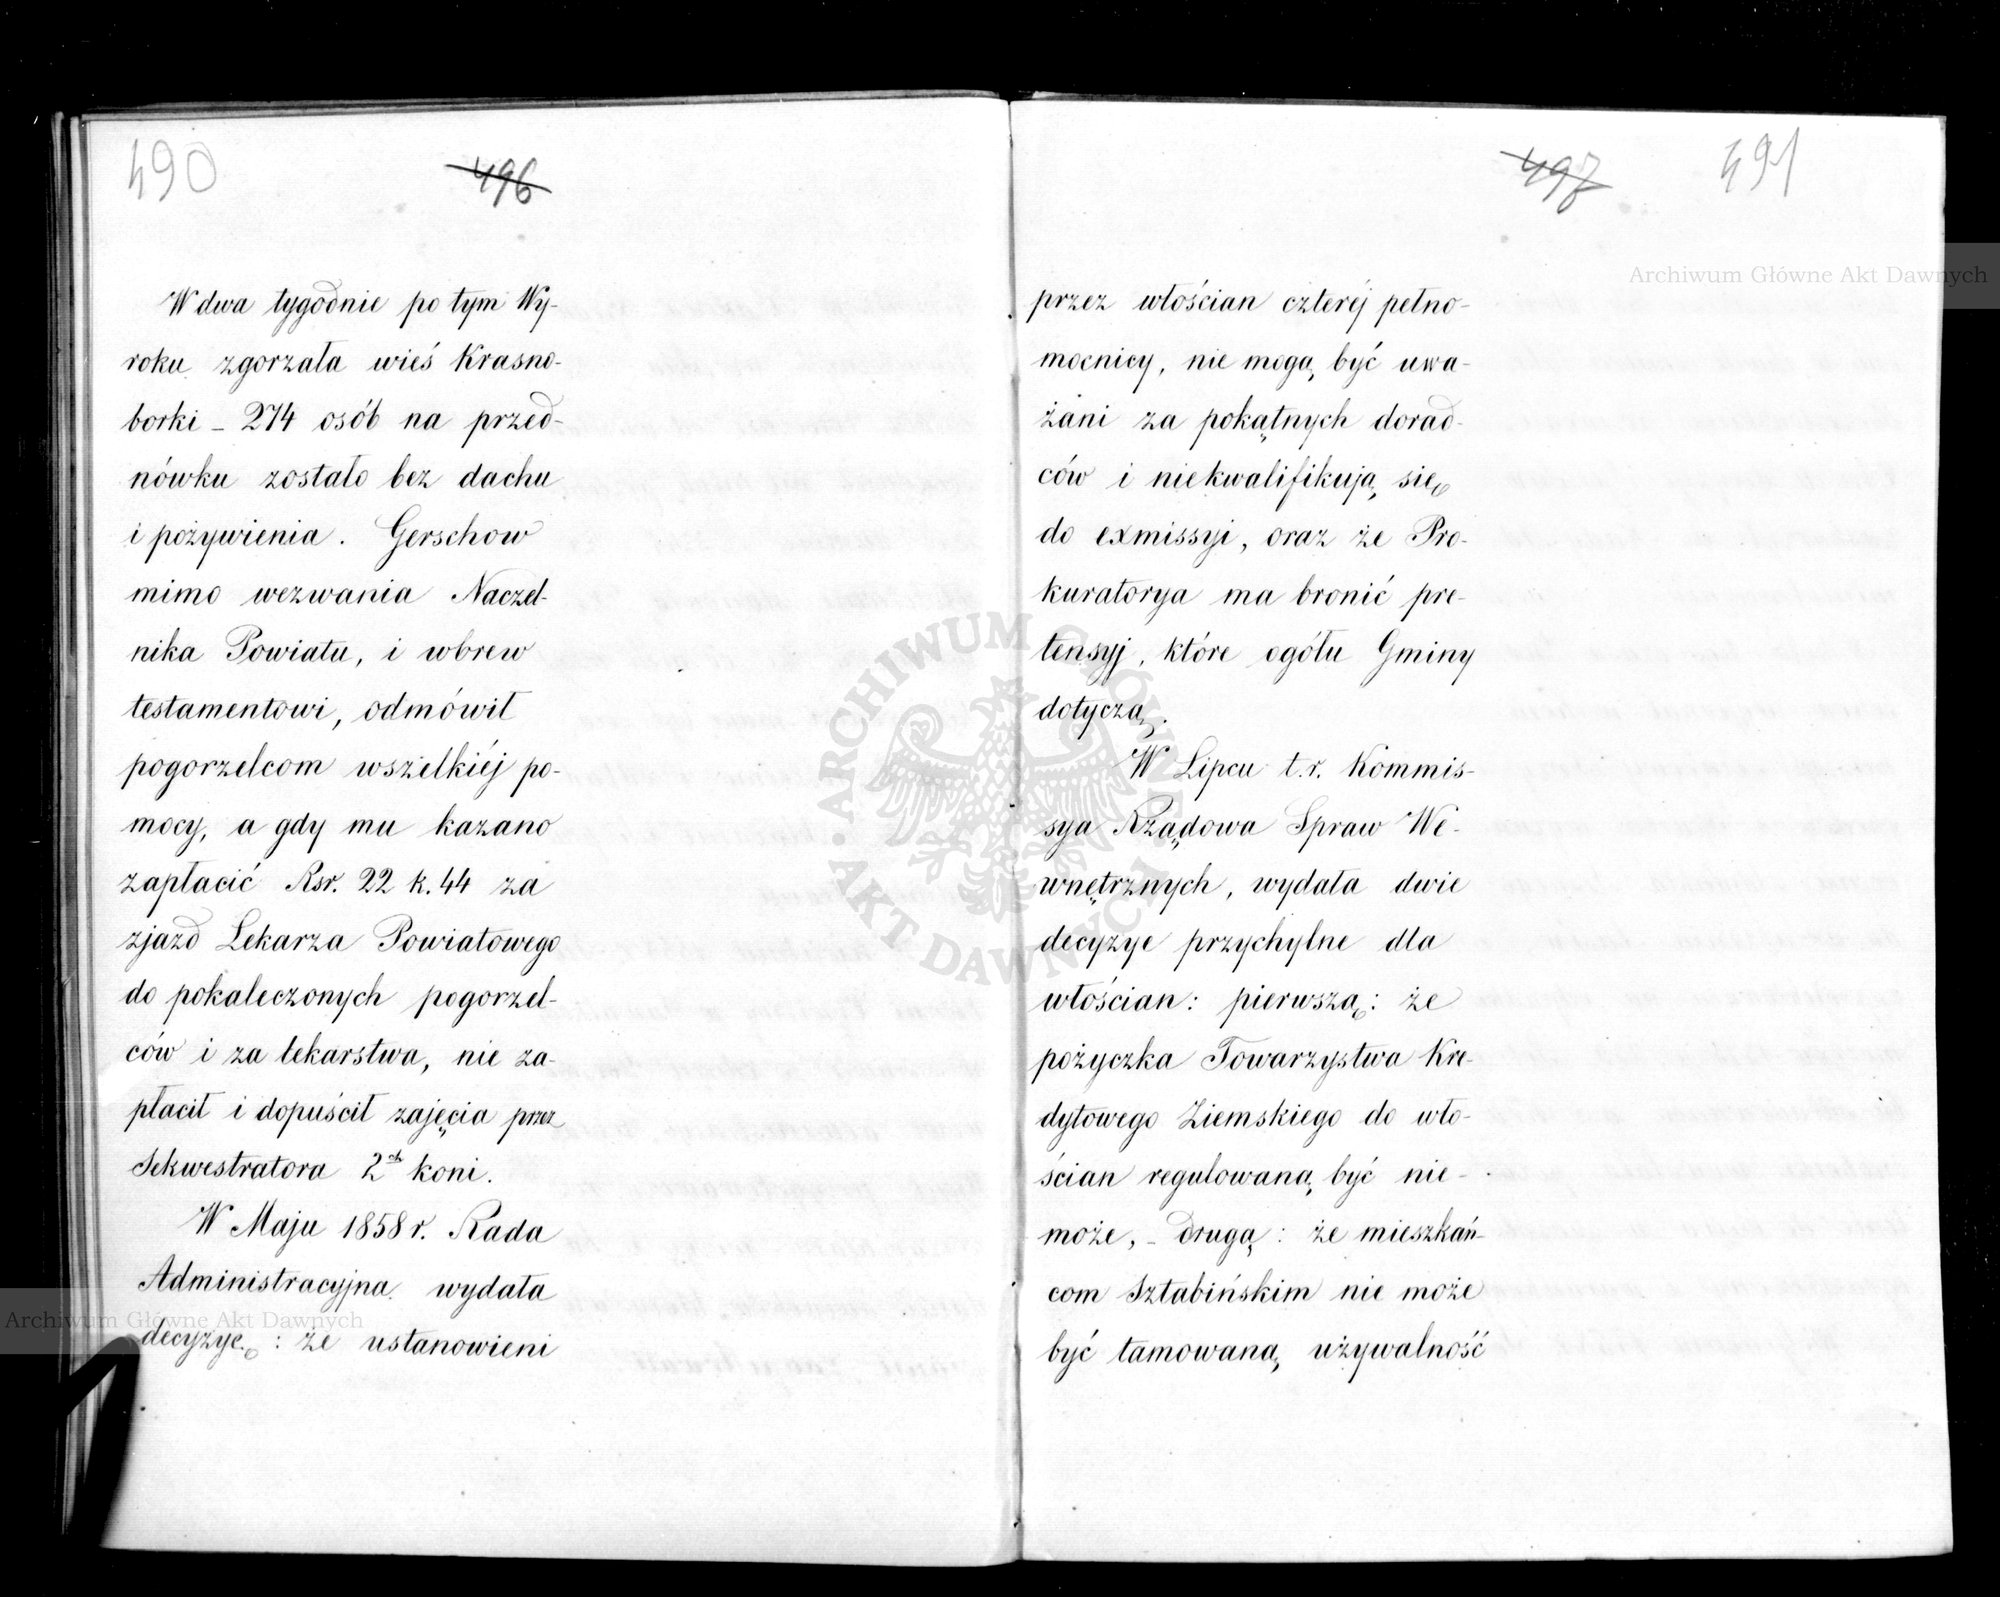 490
496
W dwa tygodnie po tym Wy-
roku zgorzała wieś Krasno-
borki – 274 osób na przed-
nówku zostało bez dachu
i pożywienia. Gerschow
mimo wezwania Naczel-
nika Powiatu, i wbrew
testamentowi, odmówił
pogorzelcom wszelkiéj po-
mocy, a gdy mu kazano
zapłacić Rsr. 22 k. 44 za
zjazd Lekarza Powiatowego
do pokaleczonych pogorzel-
ców i za lekarstwa, nie za-
płacił i dopuścił zajęcia przez
Sekwestratora 2ch koni.
W Maju 1858 r. Rada
Administracyjna wydała
decyzyę : że ustanowieni
497
491
przez włościan czteréj pełno-
mocnicy, nie mogą być uwa-
żani za pokątnych dorad-
ców i niekwalifikują się
do exmissyi, oraz że Pro-
kuratorya ma bronić pre-
tensyj, które ogółu Gminy
dotyczą.
W Lipcu t.r. Kommis-
sya Rządowa Spraw We-
wnętrznych, wydała dwie
decyzye przychylne dla
włościan: pierwszą: że
pożyczka Towarzystwa Kre-
dytowego Ziemskiego do wło-
ścian regulowaną być nie-
może, – drugą : że mieszkań-
com Sztabińskim nie może
być tamowaną używalność
Archiwum Główne Akt Dawnych
Archiwum Główne Akt Dawnych
· ARCHIWUM GŁÓWNE · AKT DAWNYCH